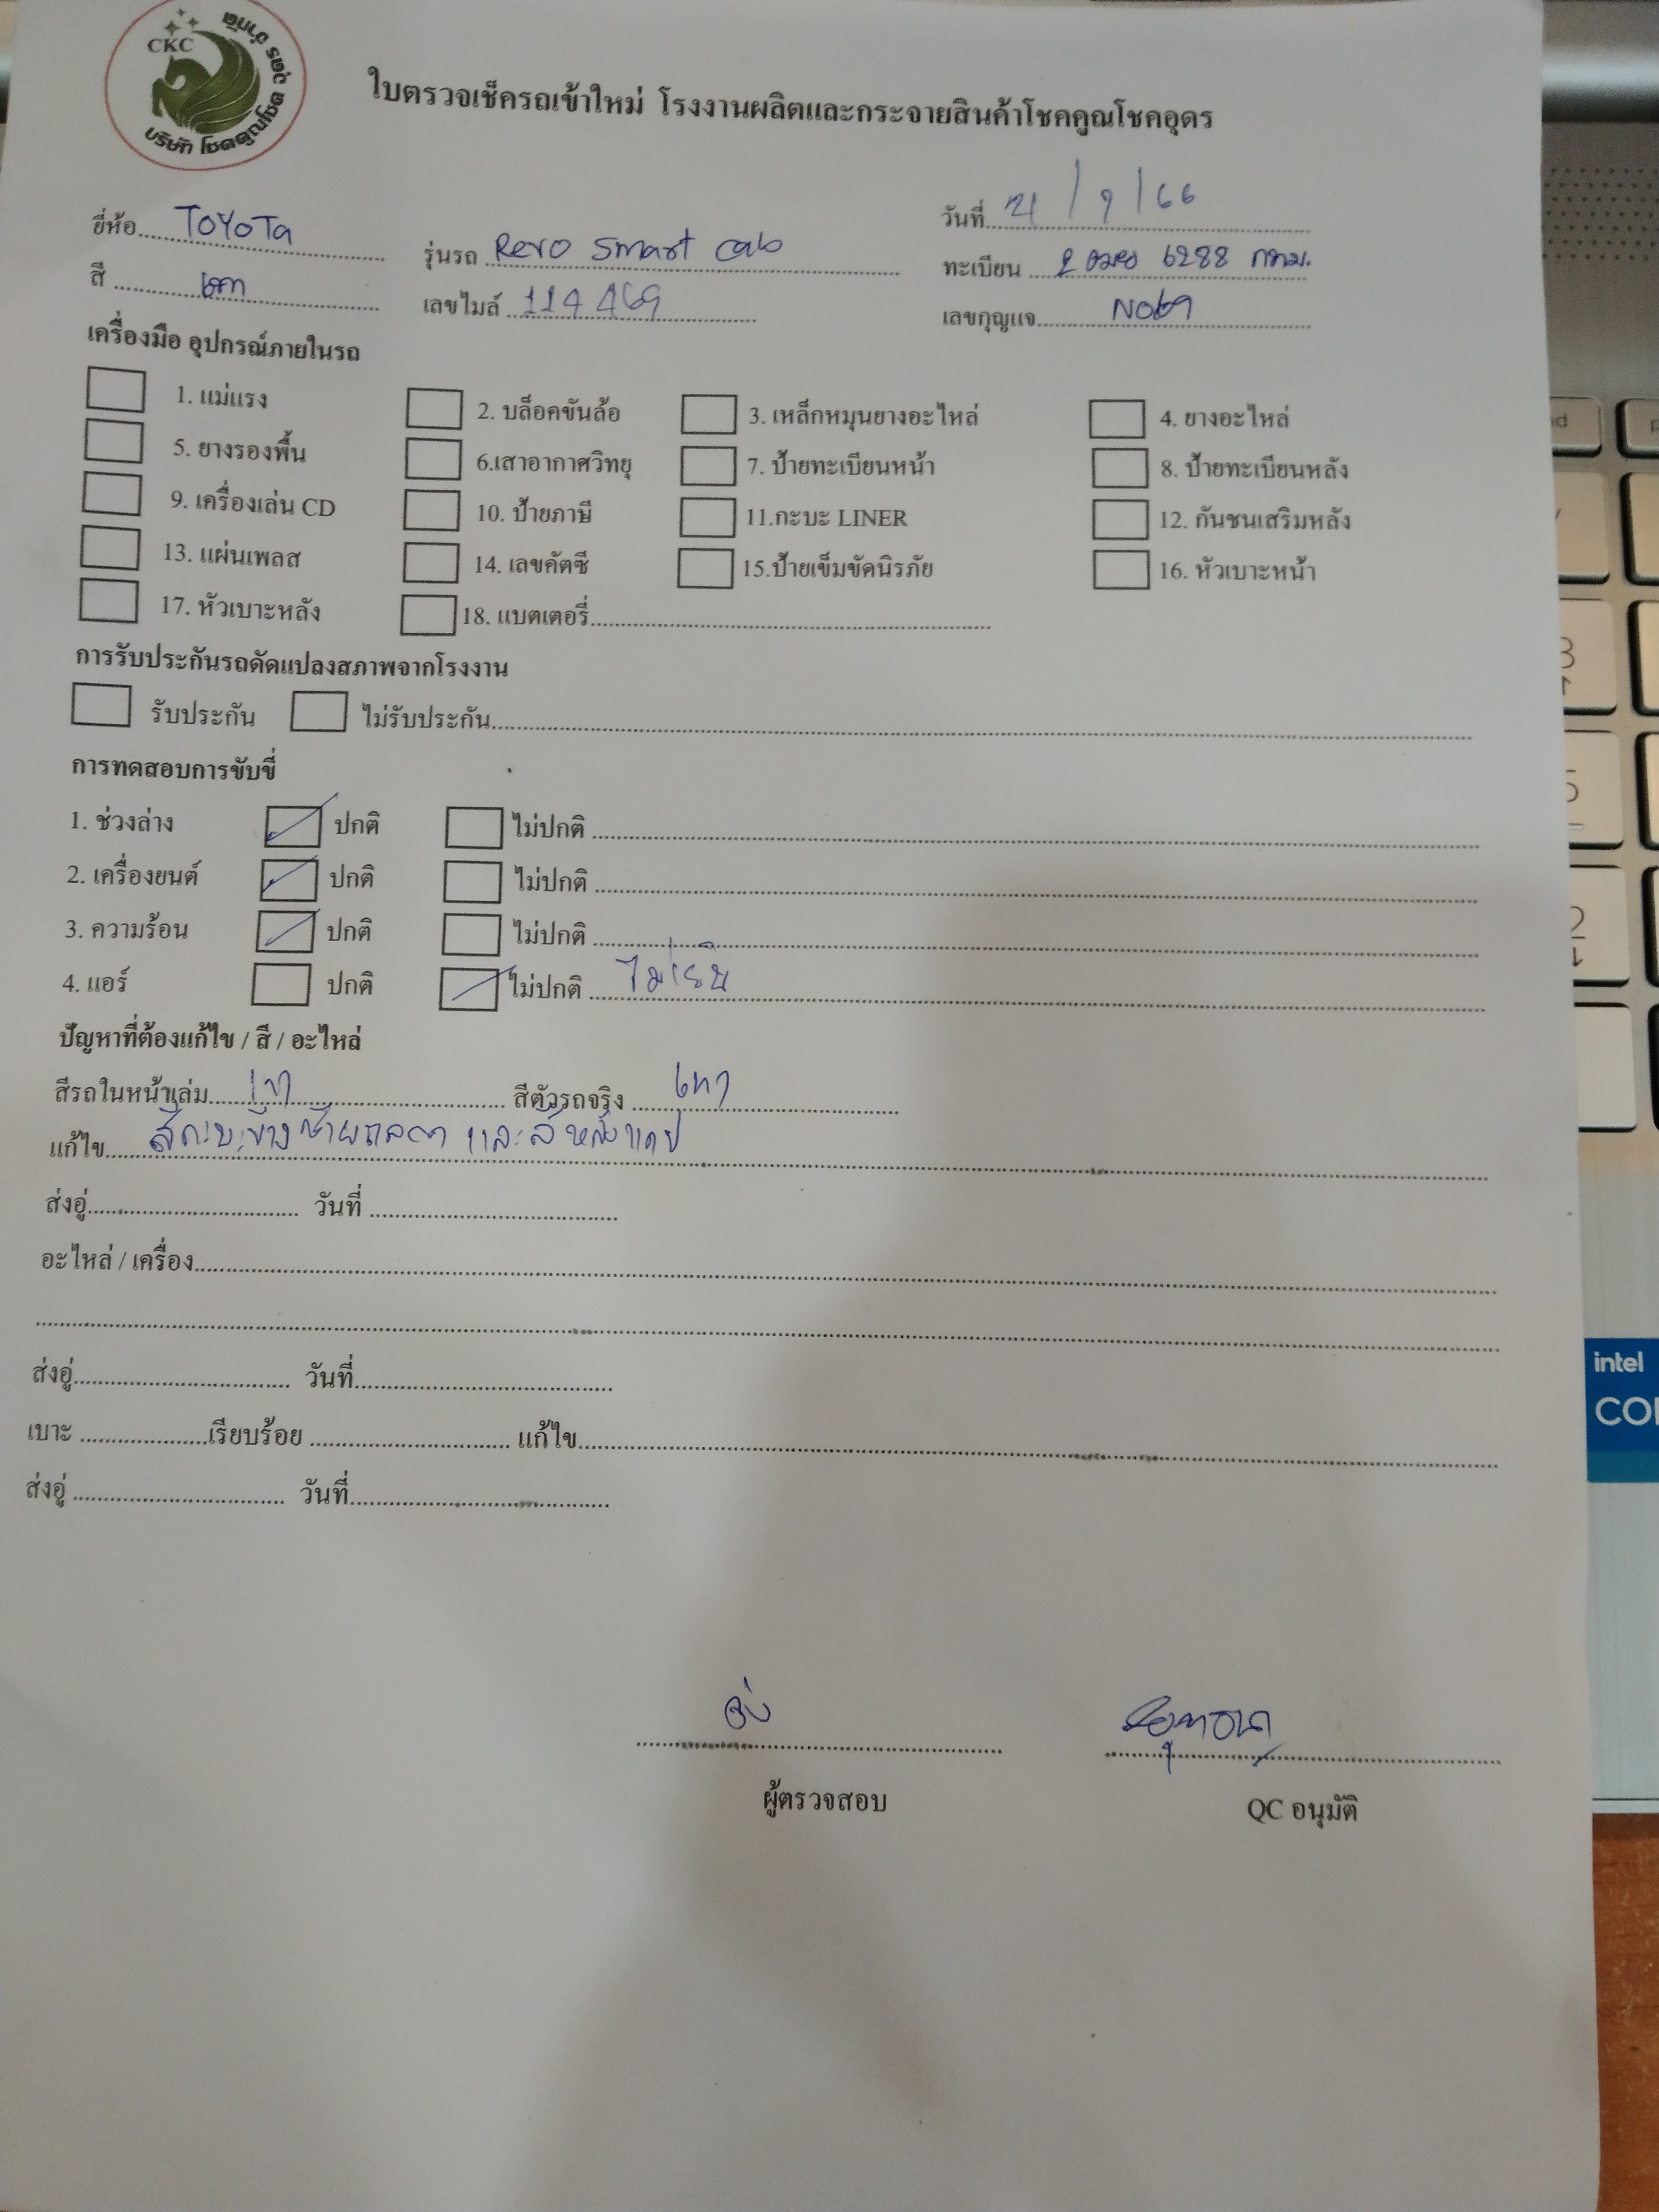 CKC
บริษัท โชคคูณโชค อุดร จำกัด
ใบตรวจเช็ครถเข้าใหม่ โรงงานผลิตและกระจายสินค้าโชคคูณโชคอุดร
ยี่ห้อ TOYOTA รุ่นรถ Revo Smart cab วันที่ 21/9/66
สี เทา เลขไมล์ 114469 ทะเบียน 6288 กทม.
เลขกุญแจ
เครื่องมือ อุปกรณ์ภายในรถ
1. แม่แรง 2. บล็อคขันล้อ 3. เหล็กหมุนยางอะไหล่ 4. ยางอะไหล่
5. ยางรองพื้น 6.เสาอากาศวิทยุ 7. ป้ายทะเบียนหน้า 8. ป้ายทะเบียนหลัง
9. เครื่องเล่น CD 10. ป้ายภาษี 11.กะบะ LINER 12. กันชนเสริมหลัง
13. แผ่นเพลส 14. เลขคัตซี 15.ป้ายเข็มขัดนิรภัย 16. หัวเบาะหน้า
17. หัวเบาะหลัง 18. แบตเตอรี่
การรับประกันรถดัดแปลงสภาพจากโรงงาน
รับประกัน ไม่รับประกัน
การทดสอบการขับขี่
1. ช่วงล่าง ปกติ ไม่ปกติ
2. เครื่องยนต์ ปกติ ไม่ปกติ
3. ความร้อน ปกติ ไม่ปกติ
4. แอร์ ปกติ ไม่ปกติ ไม่เย็น
ปัญหาที่ต้องแก้ไข / สี / อะไหล่
สีรถในหน้าเล่ม เทา สีตัวรถจริง เทา
แก้ไข สีกะบะข้างซ้ายถลอก และสีหลังแคป
ส่งอู่ วันที่
อะไหล่ / เครื่อง
ส่งอู่ วันที่
เบาะ เรียบร้อย แก้ไข
ส่งอู่ วันที่
ผู้ตรวจสอบ QC อนุมัติ
intel